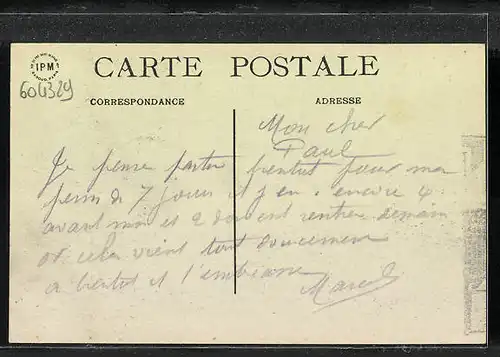 IPM
604329
CARTE POSTALE
CORRESPONDANCE
ADRESSE
Mon cher
Paul
Je pense partir bientot pour ma
perm de 7 jours et j en . encore 4
avant moi et 2 doivent rentrer demain
et cela vient tout doucement
a bientot et t'embrasse
Marcel